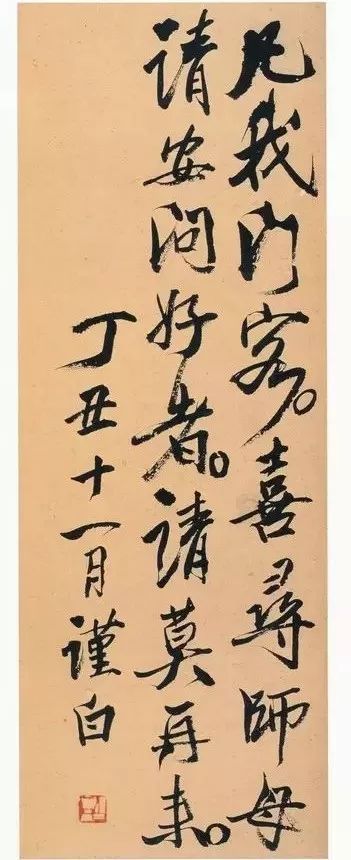 凡我门客。喜尋師母
请安问好者。请莫再来。
丁丑十一月谨白